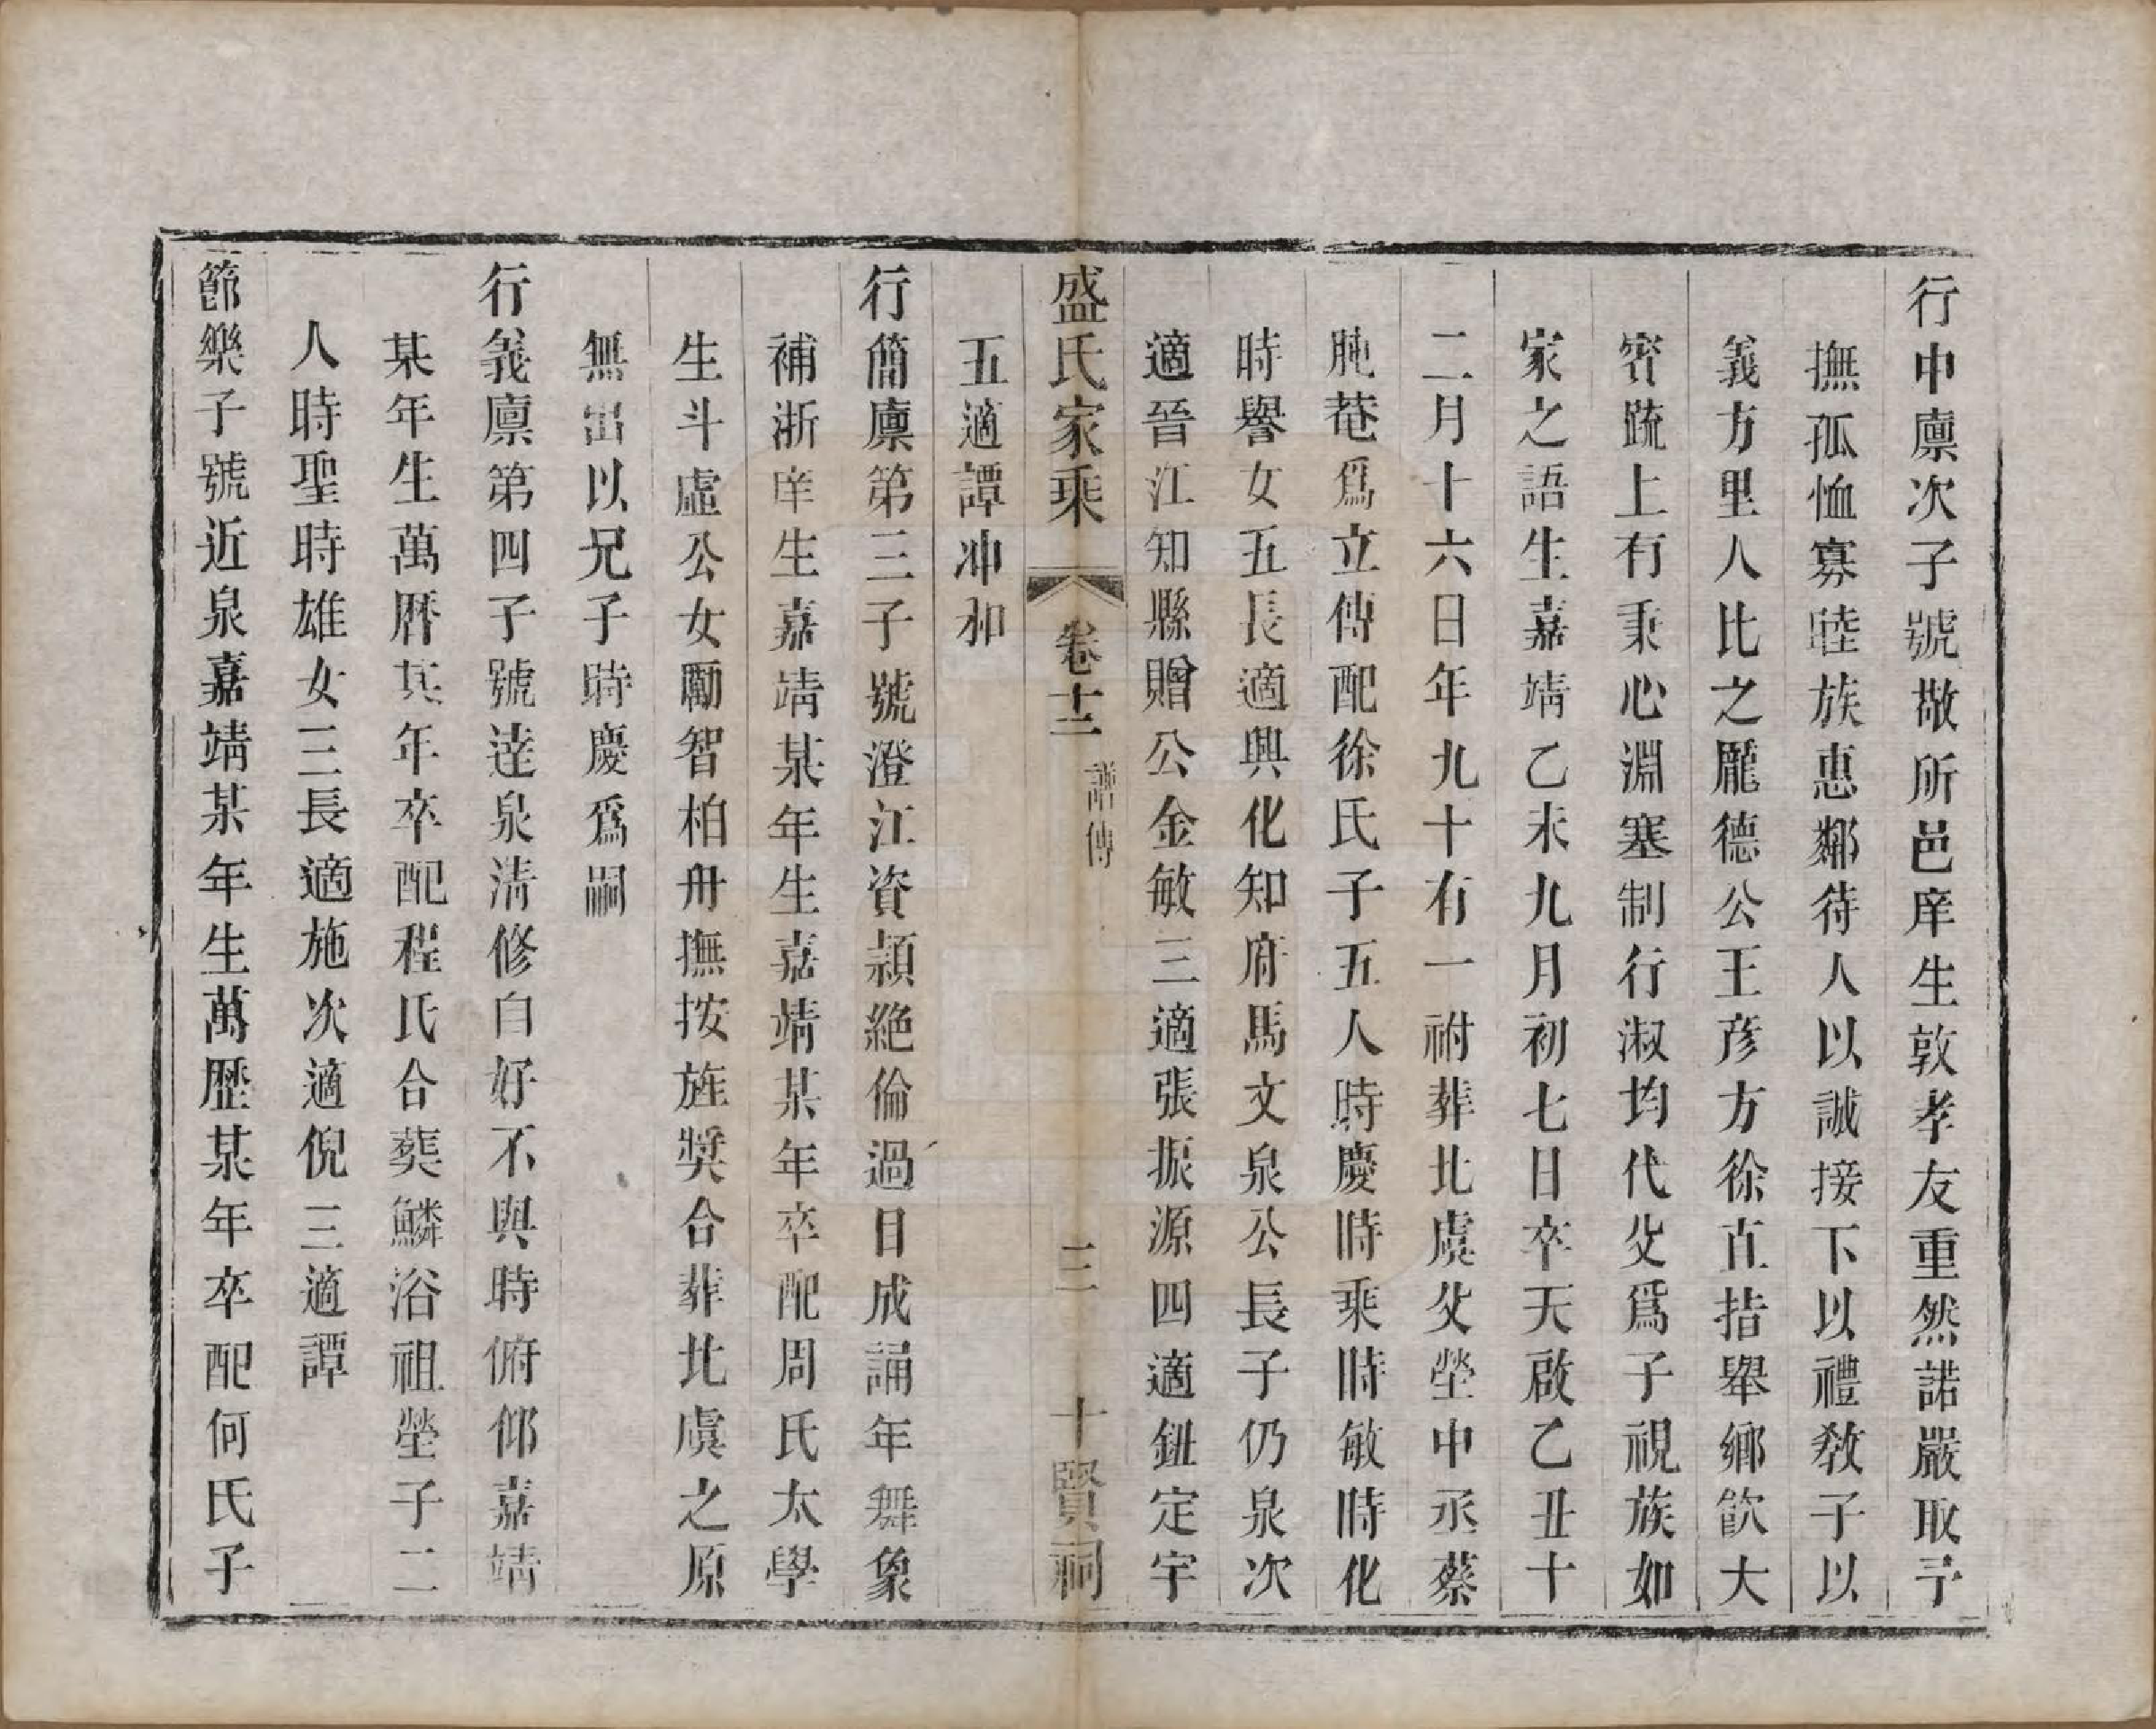 行中廪次子號敬所邑庠生敦孝友重然諾嚴取予
撫孤恤寡睦族惠鄰待人以誠接下以禮教子以
義方里人比之龎德公王彦方徐直指舉鄉飲大
賔䟽上有秉心淵塞制行淑均代父爲子視族如
家之語生嘉靖乙未九月初七日卒天啟乙丑十
二月十六日年九十有一祔葬北虞父塋中丞蔡
肫菴爲立傳配徐氏子五人時慶時乘時敏時化
時譽女五長適興化知府馬文泉公長子仍泉次
適晉江知縣贈公金敏三適張振源四適鈕定宇
五適譚冲和
盛氏家乘 卷十二 譜傳 三 十賢祠
行簡廪第三子號澄江資穎絶倫過目成誦年舞象
補浙庠生嘉靖某年生嘉靖某年卒配周氏太學
生斗虛公女勵智柏舟撫按旌奬合葬北虞之原
無出以兄子時慶爲嗣
行義廪第四子號逹泉清修自好不與時俯仰嘉靖
某年生萬曆某年卒配程氏合葬鱗浴祖塋子二
人時聖時雄女三長適施次適倪三適譚
節樂子號近泉嘉靖某年生萬歷某年卒配何氏子